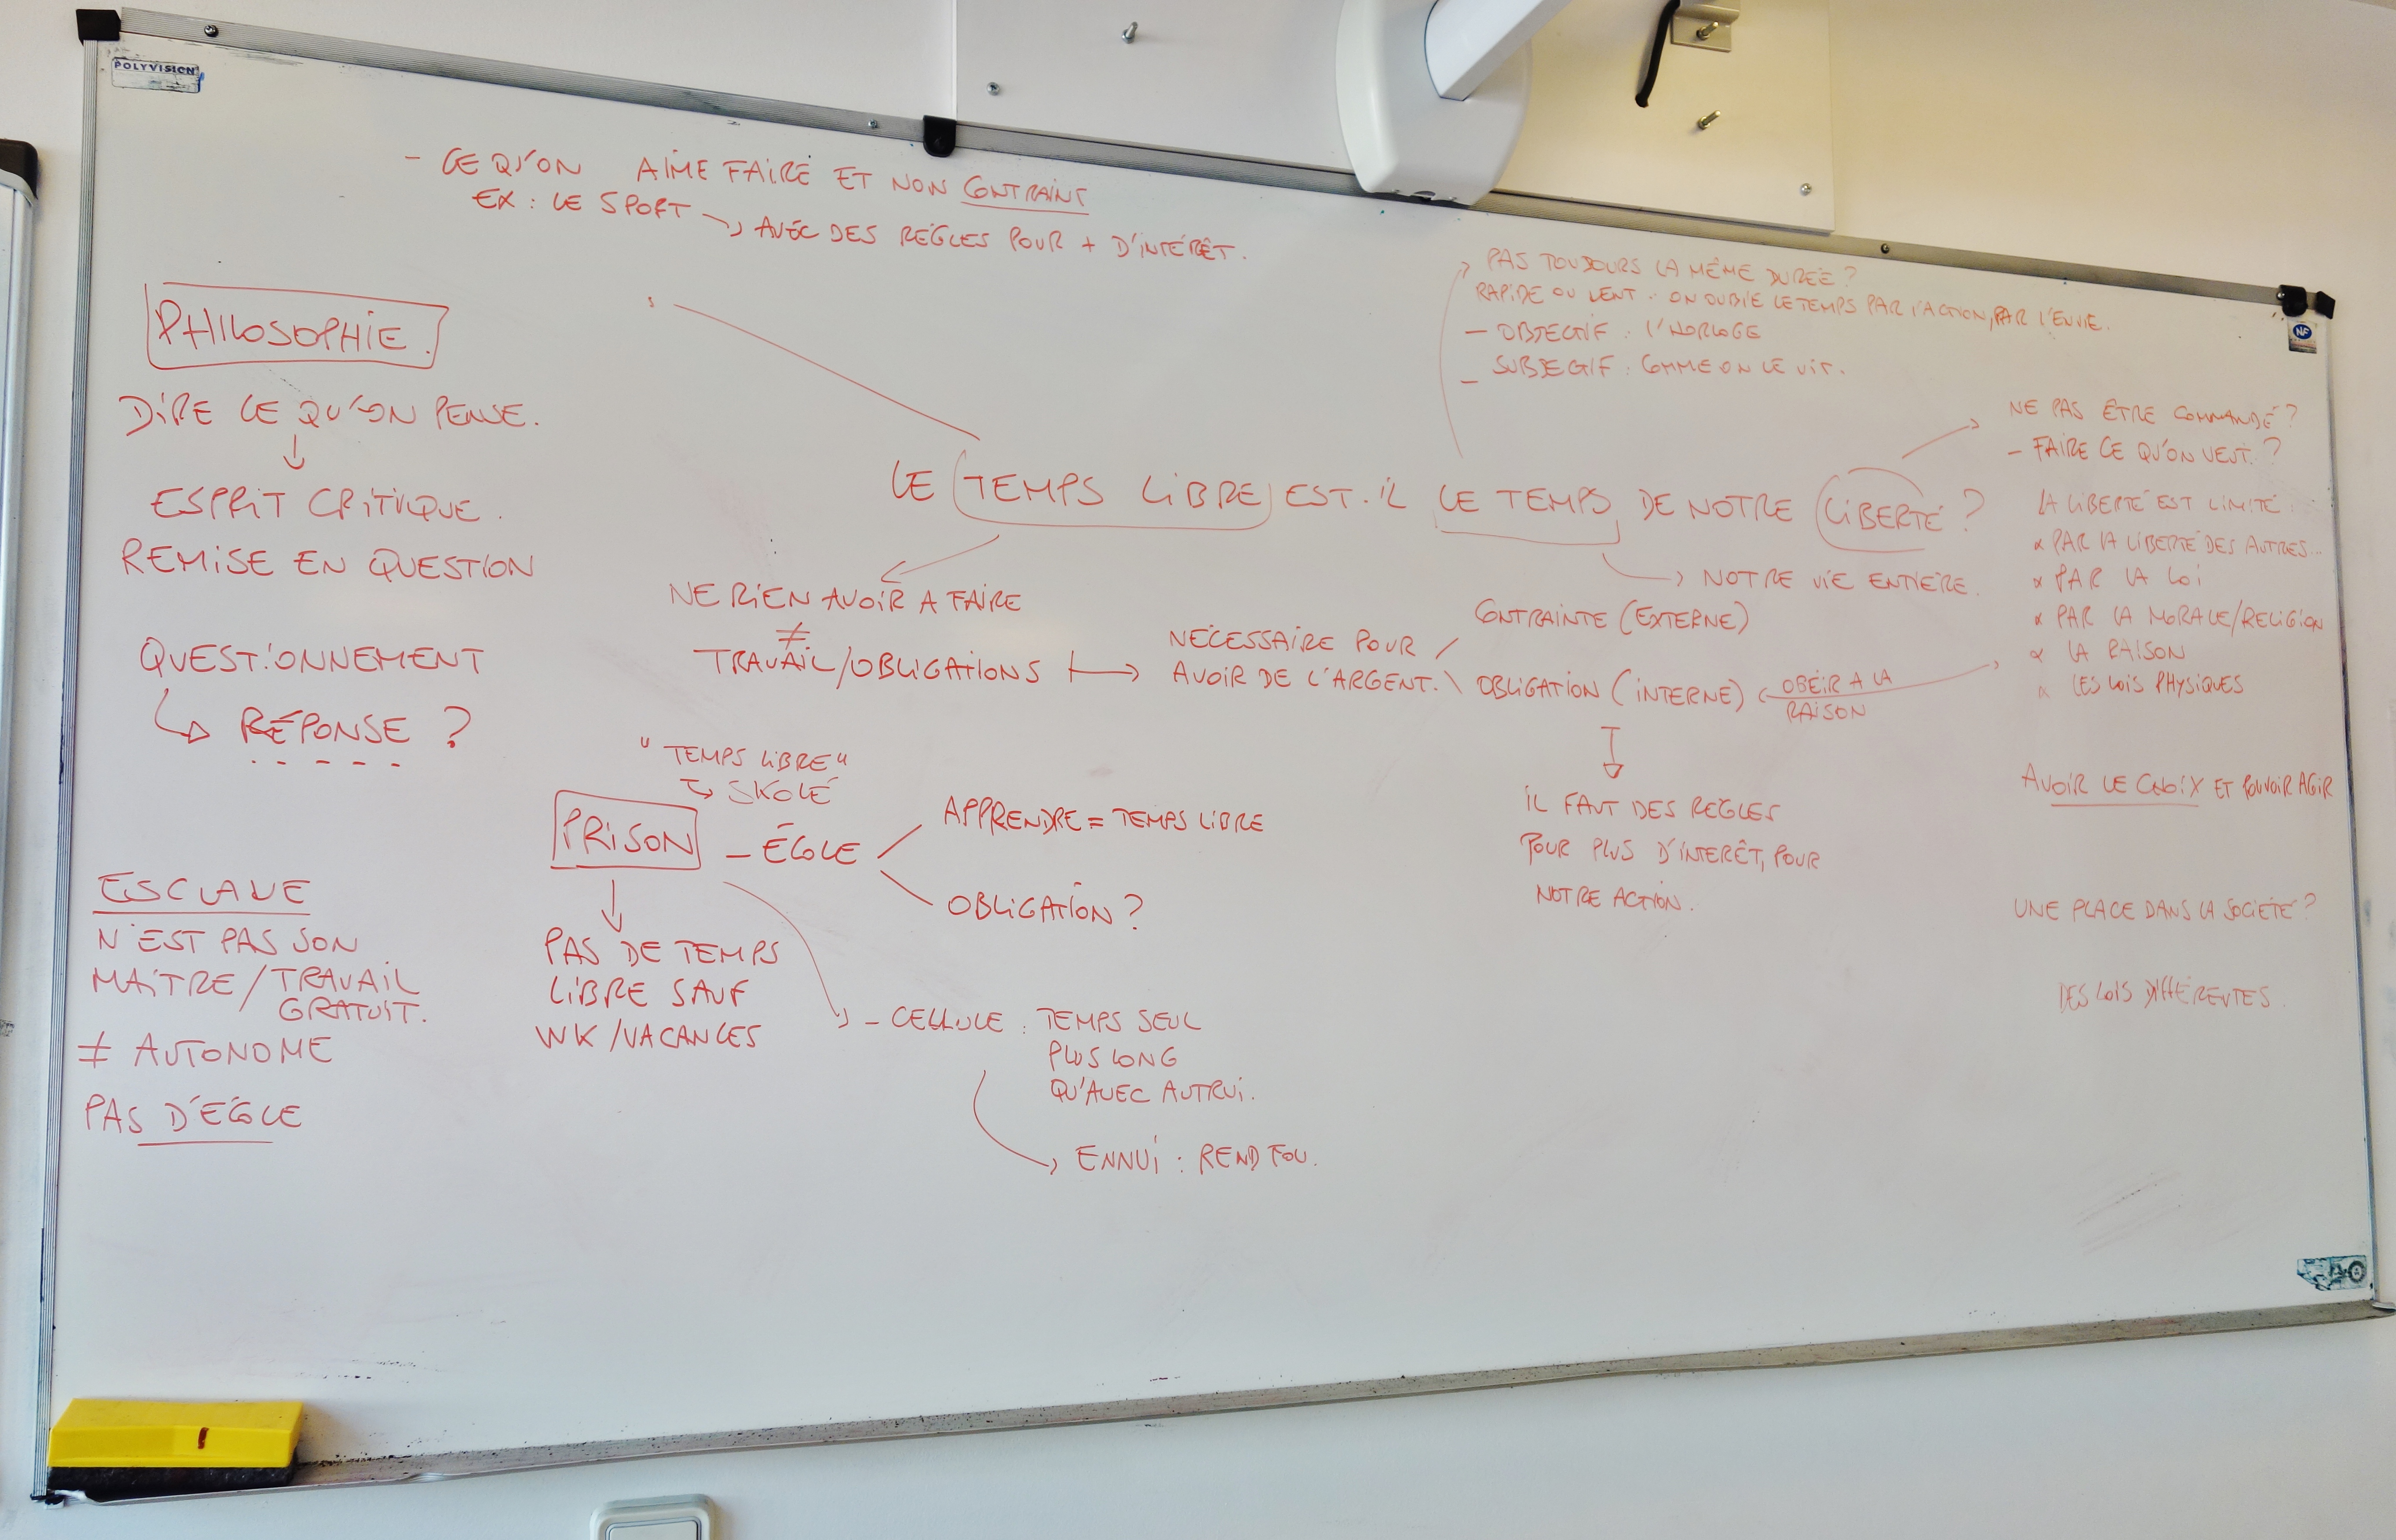 POLYVISION
- CE QU'ON AIME FAIRE ET NON CONTRAINT
EX : LE SPORT → AVEC DES RÈGLES POUR + D'INTÉRÊT.
PHILOSOPHIE.
DIRE CE QU'ON PENSE.
↓
ESPRIT CRITIQUE.
REMISE EN QUESTION
QUESTIONNEMENT
↳ RÉPONSE ?
ESCLAVE
N'EST PAS SON
MAITRE / TRAVAIL
GRATUIT.
≠ AUTONOME
PAS D'ÉCOLE
→ PAS TOUJOURS LA MÊME DURÉE ?
RAPIDE OU LENT. ON OUBLIE LE TEMPS PAR L'ACTION, PAR L'ENVIE.
- OBJECTIF : L'HORLOGE
- SUBJECTIF : COMME ON LE VIT.
LE TEMPS LIBRE EST-IL LE TEMPS DE NOTRE LIBERTÉ ?
→ NOTRE VIE ENTIÈRE.
NE RIEN AVOIR A FAIRE
≠
TRAVAIL/OBLIGATIONS → NÉCESSAIRE POUR
AVOIR DE L'ARGENT.
CONTRAINTE (EXTERNE)
OBLIGATION (INTERNE)
OBÉIR A LA
RAISON
IL FAUT DES RÈGLES
POUR PLUS D'INTÉRÊT, POUR
NOTRE ACTION.
"TEMPS LIBRE"
↳ SKOLÉ
PRISON - ÉCOLE
APPRENDRE = TEMPS LIBRE
OBLIGATION ?
PAS DE TEMPS
LIBRE SAUF
WK /VACANCES
- CELLULE : TEMPS SEUL
PLUS LONG
QU'AVEC AUTRUI.
→ ENNUI : REND FOU.
NE PAS ÊTRE COMMANDÉ ?
- FAIRE CE QU'ON VEUT. ?
LA LIBERTÉ EST LIMITÉ :
× PAR LA LIBERTÉ DES AUTRES...
× PAR LA LOI
× PAR LA MORALE/RELIGION
× LA RAISON
× LES LOIS PHYSIQUES
AVOIR LE CHOIX ET POUVOIR AGIR
UNE PLACE DANS LA SOCIÉTÉ ?
DES LOIS DIFFÉRENTES.
NF